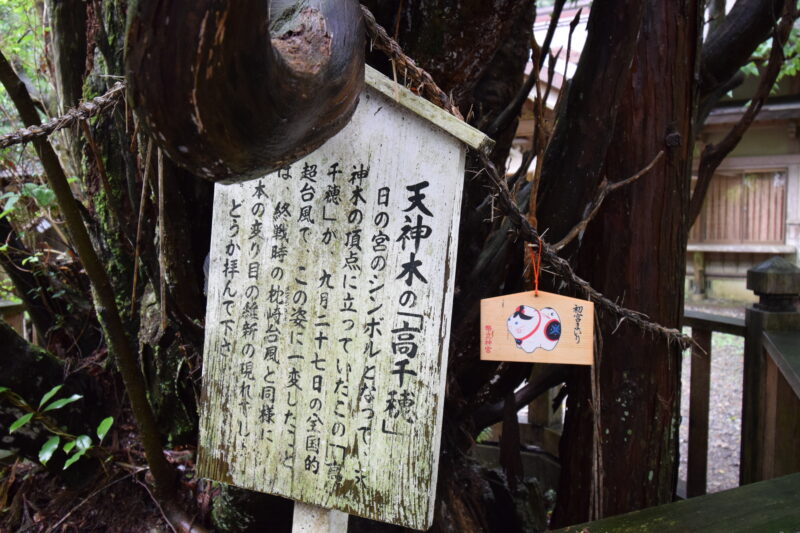 天神木の「高千穂」
日の宮のシンボルとなって、天
神木の頂点に立っていたこの「高
千穂」が、九月二十七日の全国的
超台風で、この姿に一変したこと
は、終戦時の枕崎台風と同様に
木の変り目の維新の現れでし
どうか拝んで下さ
初宮まいり